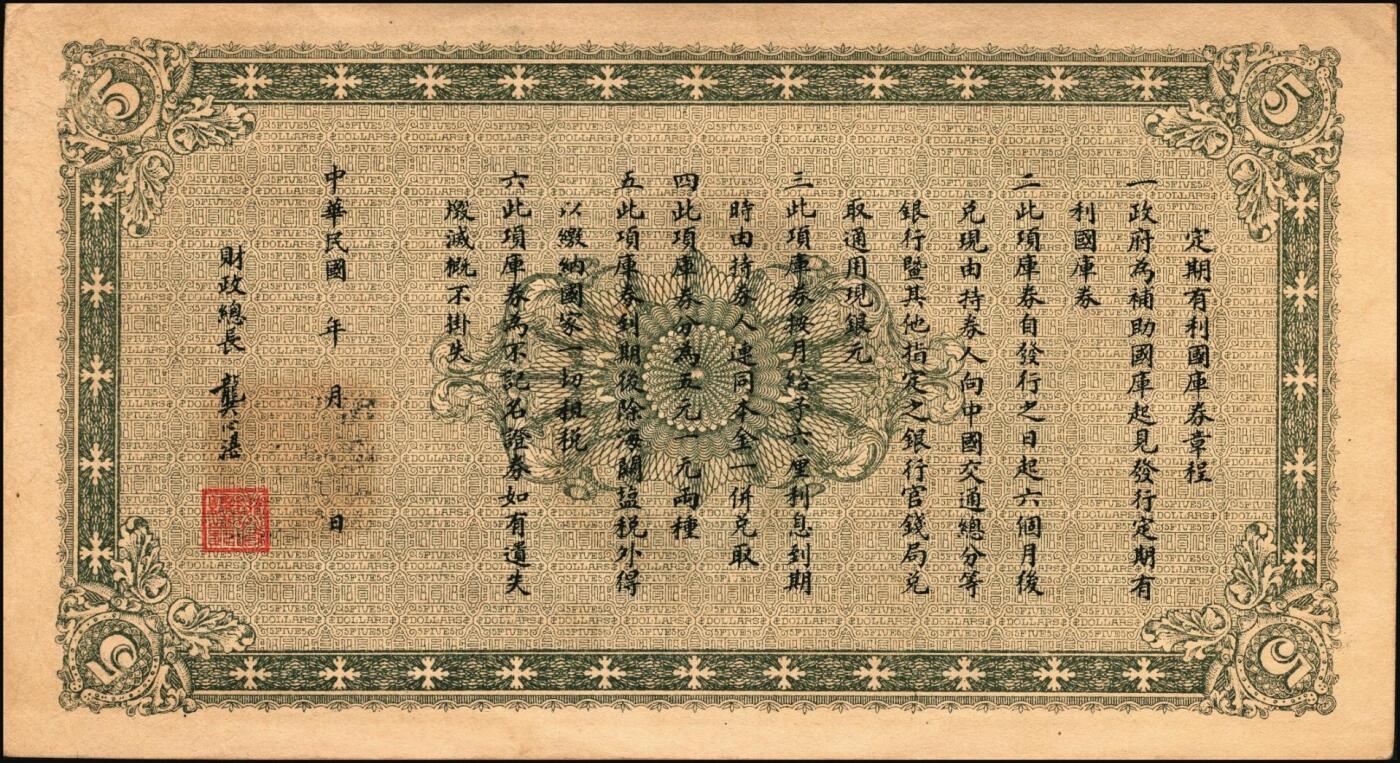 定期有利國庫券章程
一政府為補助國庫起見發行定期有
利國庫券
二此項庫券自發行之日起六個月後
兌現由持券人向中國交通總分等
銀行暨其他指定之銀行官錢局兌
取通用現銀元
三此項庫券按月給予六厘利息到期
時由持券人連同本金一併兌取
四此項庫券分為五元一元兩種
五此項庫券到期後除海關塩税外得
以繳納國家一切租税
六此項庫券為不記名證券如有遺失
燬滅概不掛失
中華民國 年 月 日
財政總長 龔心湛
5
5
5
5
5FIVE5
DOLLARS